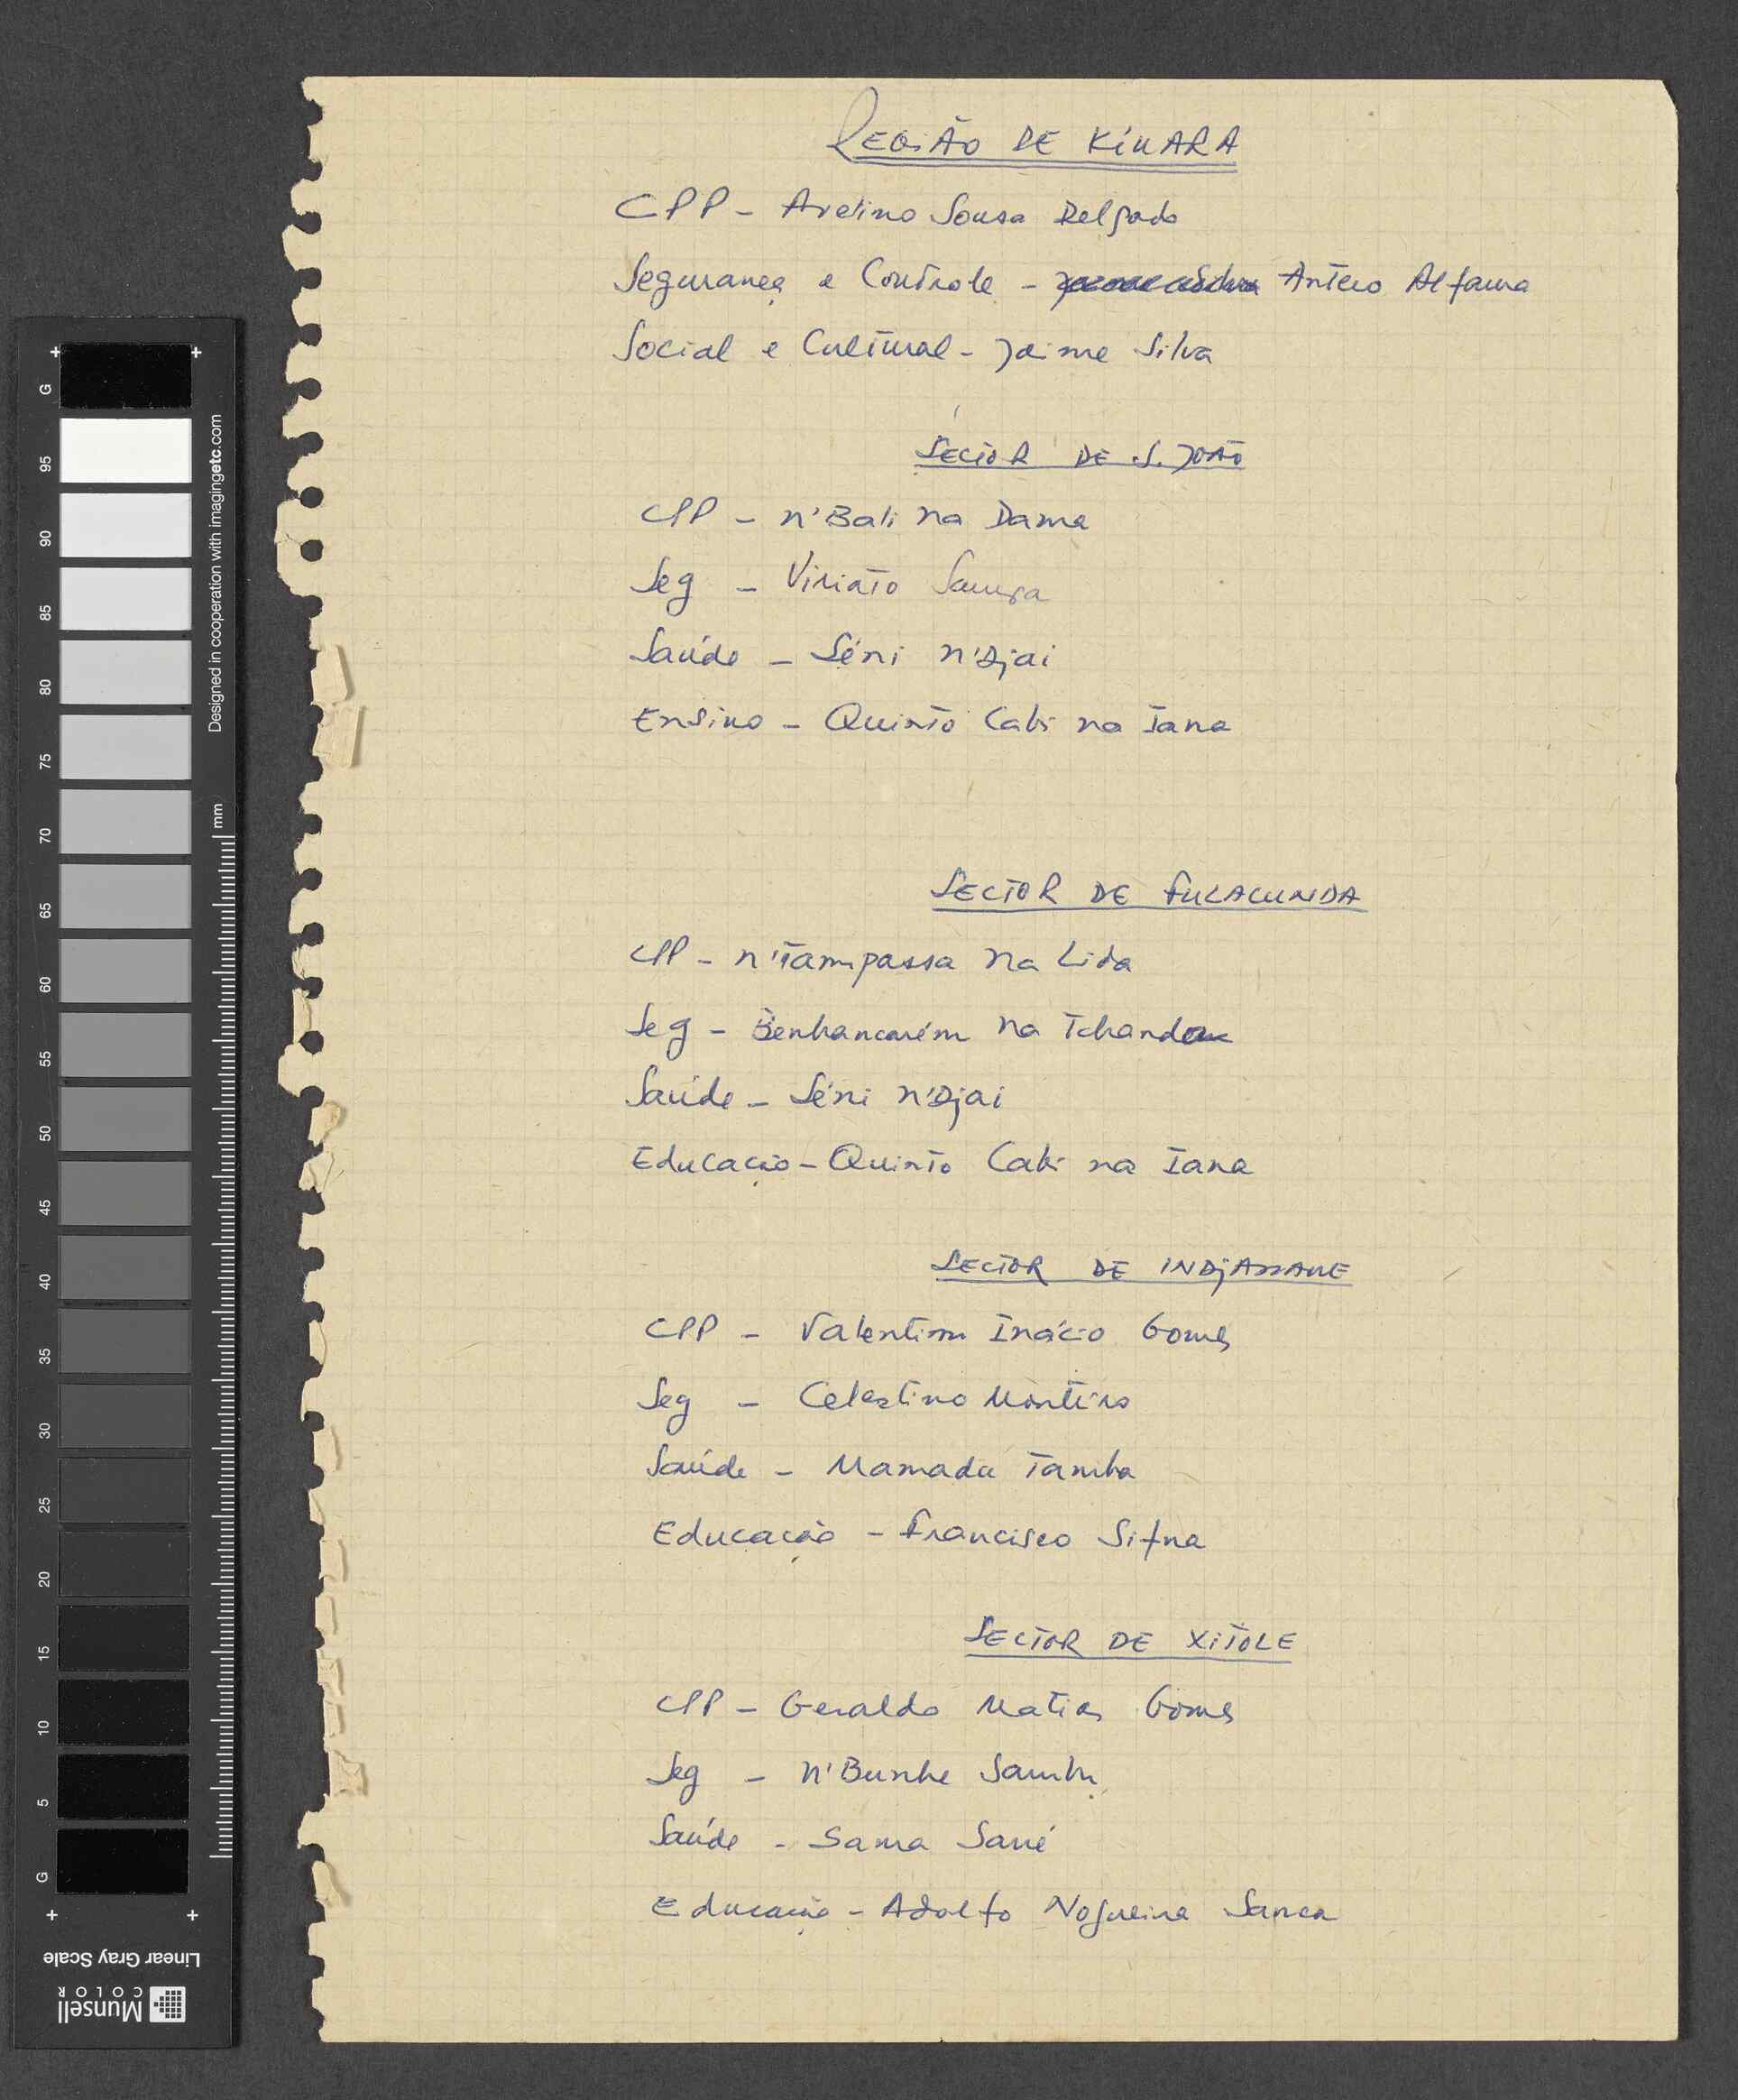 REGIÃO DE KÍNARA
CPP - Avelino Sousa Delgado
Segurança e Controle - Antero Alfama
Social e Cultural - Jaime Silva
SECTOR DE S. JOÃO
CPP - N'Bali na Dama
Seg - Viriato
Saúde - Séni N'Djai
Ensino - Quinto Cabi na Iana
SECTOR DE FULACUNDA
CPP - N'Tampassa Na Lida
Seg - Benhancarém Na
Saúde - Séni N'Djai
Educação - Quinto Cabi na Iana
SECTOR DE INDJASSANE
CPP - Valentim Inácio Gomes
Seg - Celestino Monteiro
Saúde - Mamadu Tamba
Educação - Francisco Sifna
SECTOR DE XITOLE
CPP - Geraldo Matias Gomes
Seg - N'Bunhe Sambu
Saúde - Sama Sané
Educação - Adolfo Nogueira Sanca
G
95
90
85
80
75
70
65
60
55
50
45
40
35
30
25
20
15
10
5
G
Designed in cooperation with imagingetc.com
mm
Linear Gray Scale
Munsell
COLOR